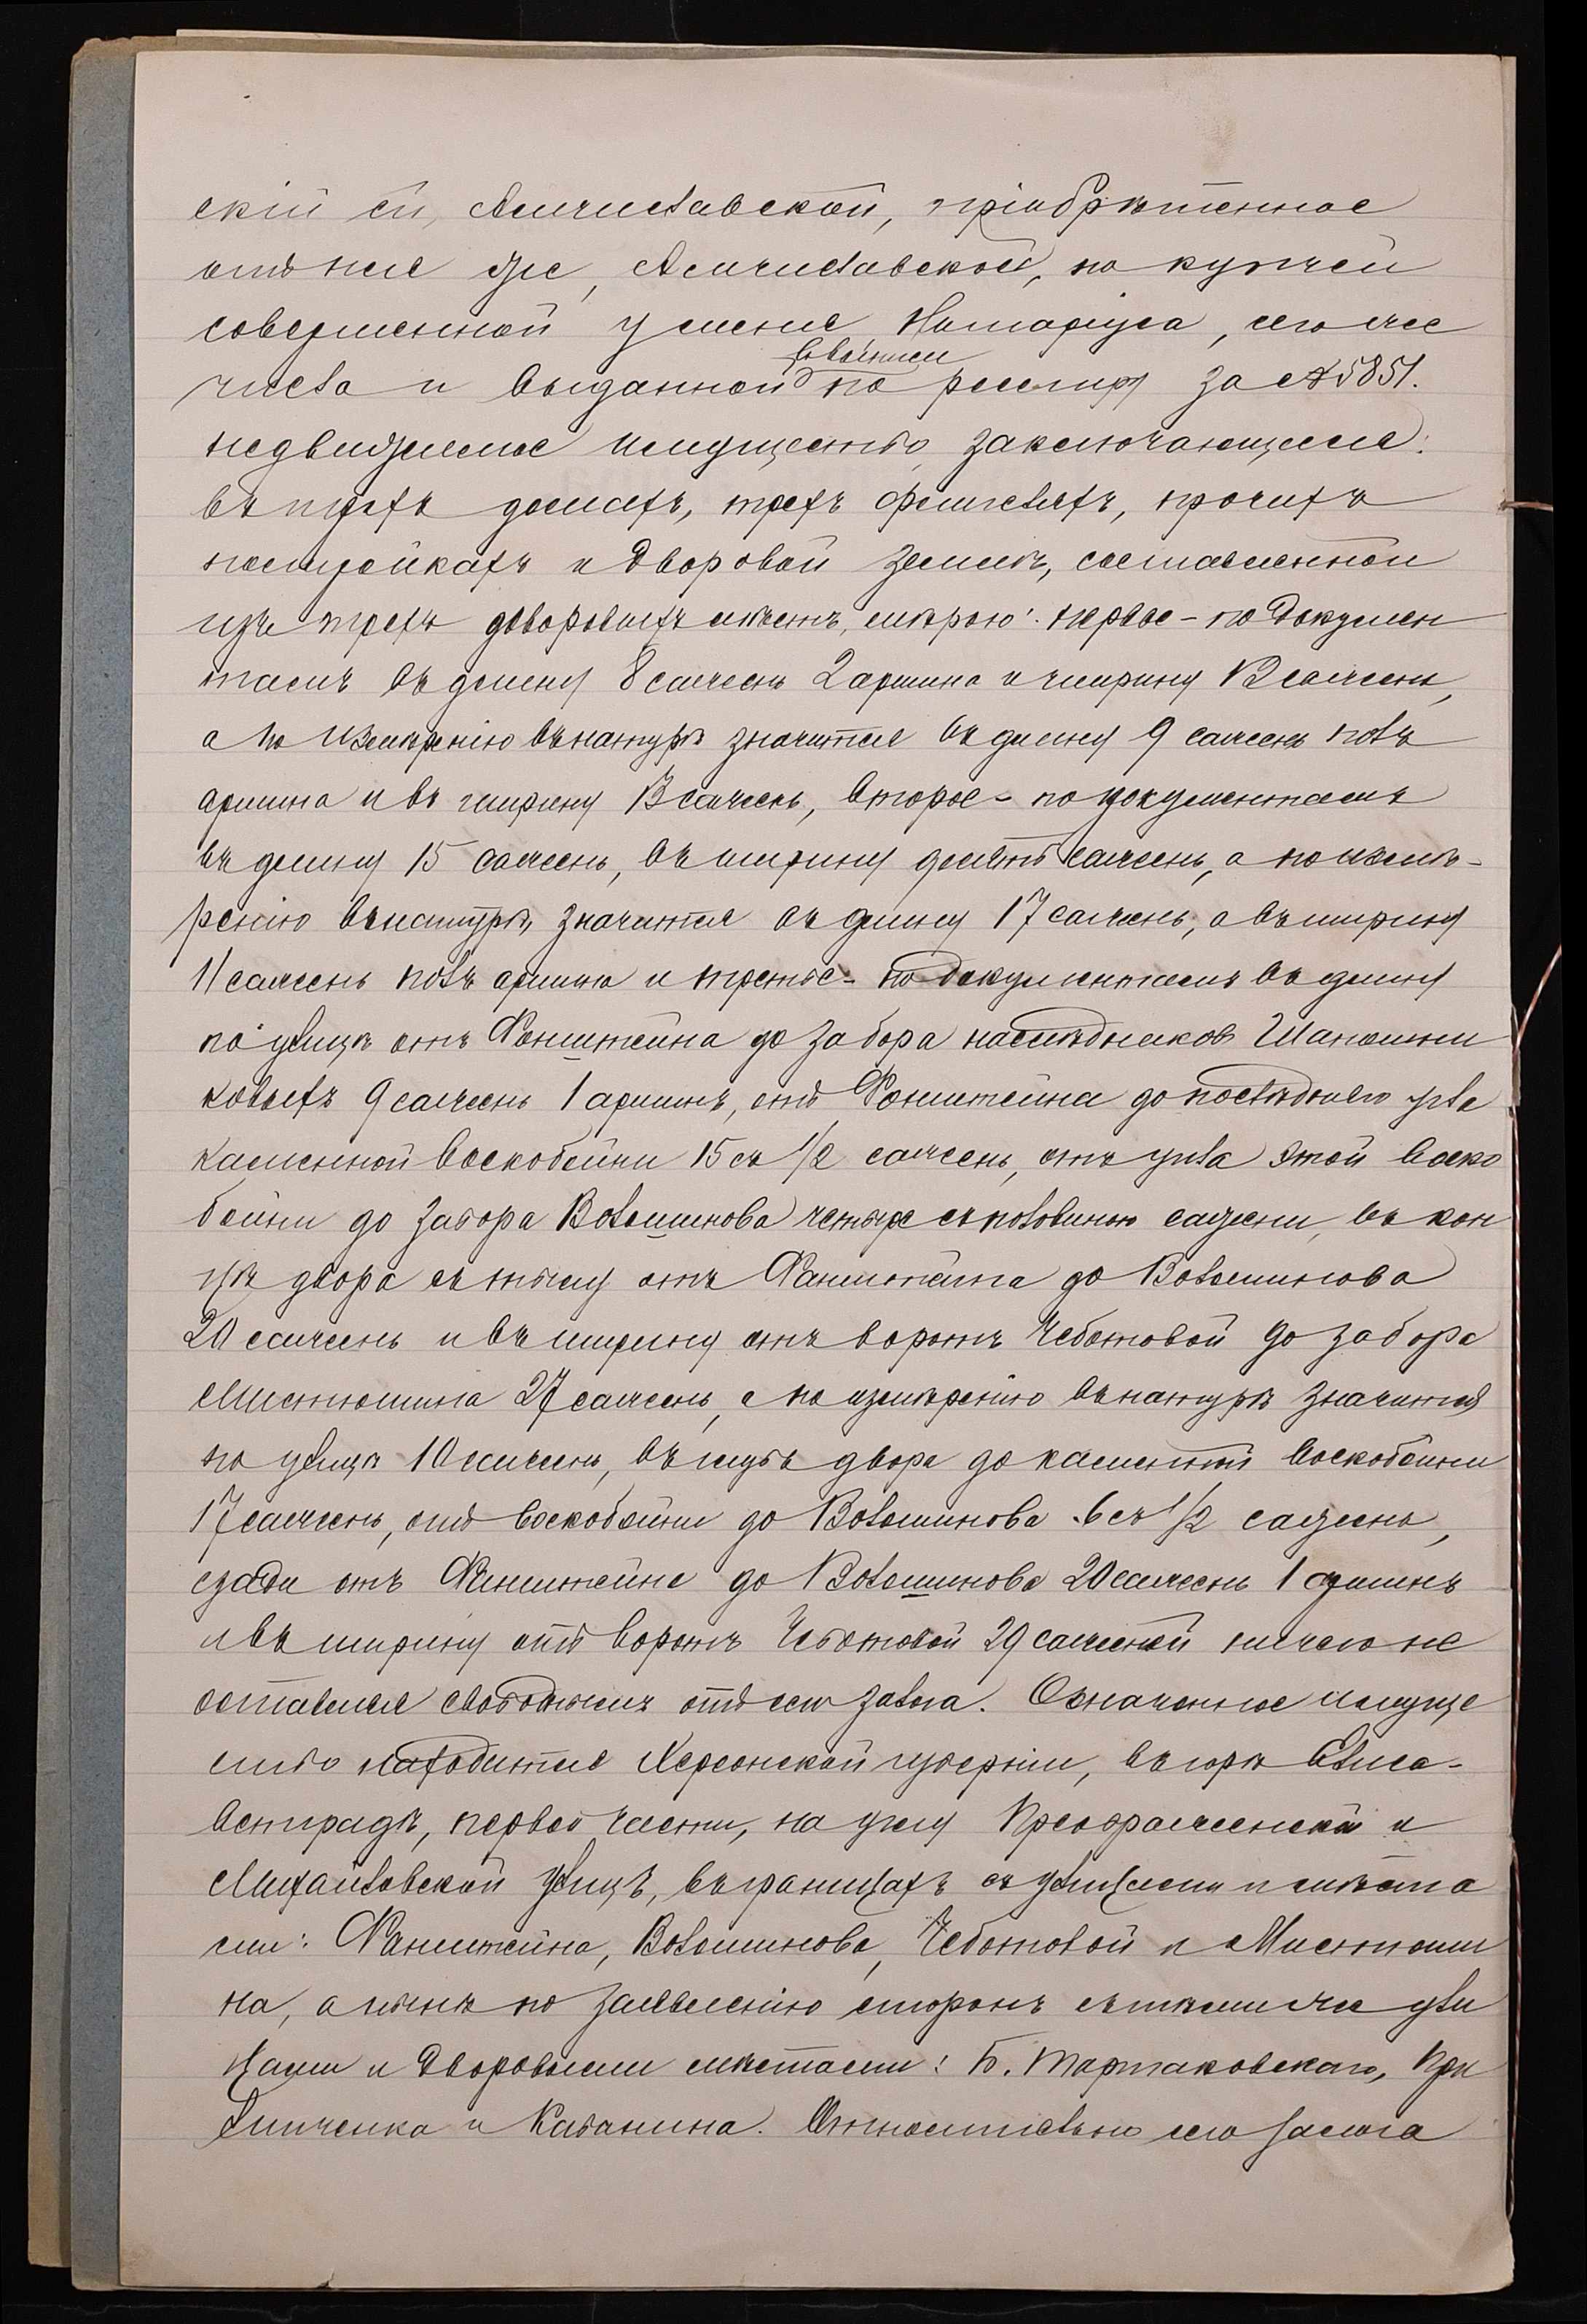 скій ей, Амчиславской, пріобрѣтенное
отъ нея же, Амчиславской, по купчей
совершенной у меня Нотаріуса, сего же
числа и выданной по реестру за № 5851.
недвижимое имущество, заключающееся:
въ трехъ домахъ, трехъ флигеляхъ, прочихъ
постройкахъ и дворовой землѣ, составленной
изъ трехъ дворовыхъ мѣстъ, мѣрою: первое – по докумен
тамъ въ длину 8 саженъ 2 аршина и ширину 13 саженъ,
а по измѣренію въ натурѣ значится въ длину 9 саженъ полъ
аршина и въ ширину 13 сажень, второе – по документамъ
въ длину 15 сажень, въ ширину десять сажень, а по измѣ-
ренію въ натурѣ, значится въ длину 17 сажень, а въ ширину
11 сажень полъ аршина и третье – по документамъ въ длину
по улицѣ отъ Фонштейна до забора наслѣдниковъ Шапошни
ковыхъ 9 сажень 1 аршинъ, отъ Фонштейна до послѣдняго угла
каменной воскобойни 15 съ 1/2 сажень, отъ угла этой воско
бойни до забора Волошинова четыре съ половиною сажени, въ кон
цѣ двора съ тылу отъ Фанштейна до Волошинова
20 сажень и въ ширину отъ воротъ Чеботовой до забора
Мистюшина 27 сажень, а по измѣренію въ натурѣ значится
по улицѣ 10 сажень, въ глубь двора до каменной воскобойни
17 сажень, отъ воскобойни до Волошинова 6 съ 1/2 сажень,
сзади отъ Фанштейна до Волошинова 20 сажень 1 аршинъ
и въ ширину отъ воротъ Чеботовой 29 саженей ничего не
оставляя свободнымъ отъ сего залога. Означенное имуще
ство находится Херсонской губерніи, въ горѣ Елиса-
ветградѣ, первой части, на углу Преображенской и
Михайловской улицъ, въ границахъ съ улицами и мѣста
ми: Фанштейна, Волошинова, Чеботовой и Мистюши
на, а нынѣ по заявленію сторонъ съ тѣми же ули
цами и дворовыми мѣстами: Б. Тартаковскаго, При
 и Кабанина. Относительно сего залога